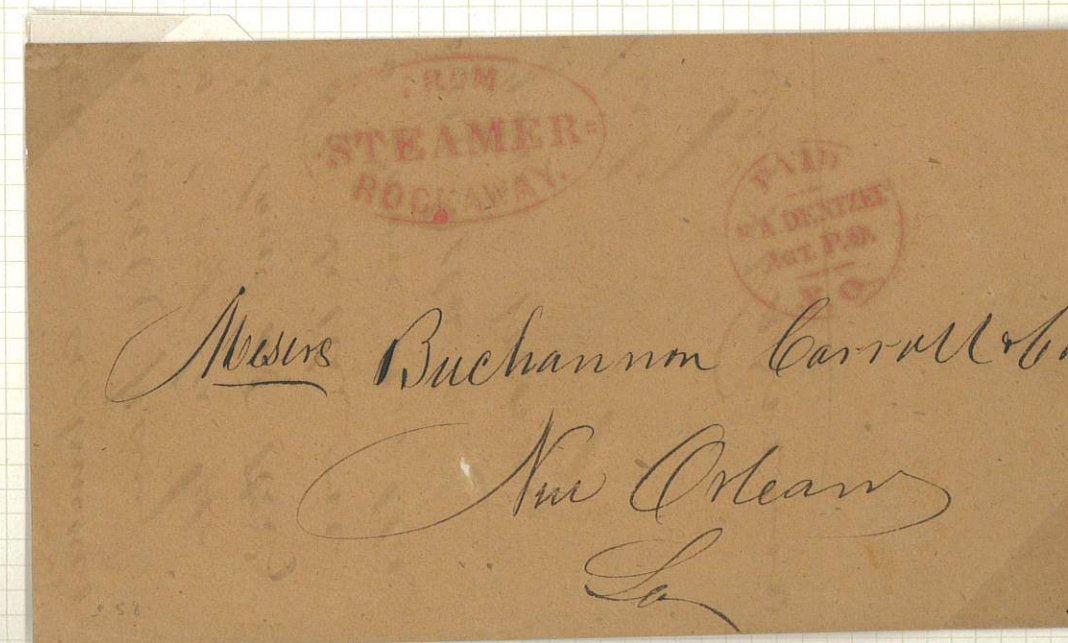 FROM
STEAMER
ROCKAWAY.
PAID
A DENTZEL
AGT. P.O.
Messrs Buchannon Carroll & Co
New Orleans
La